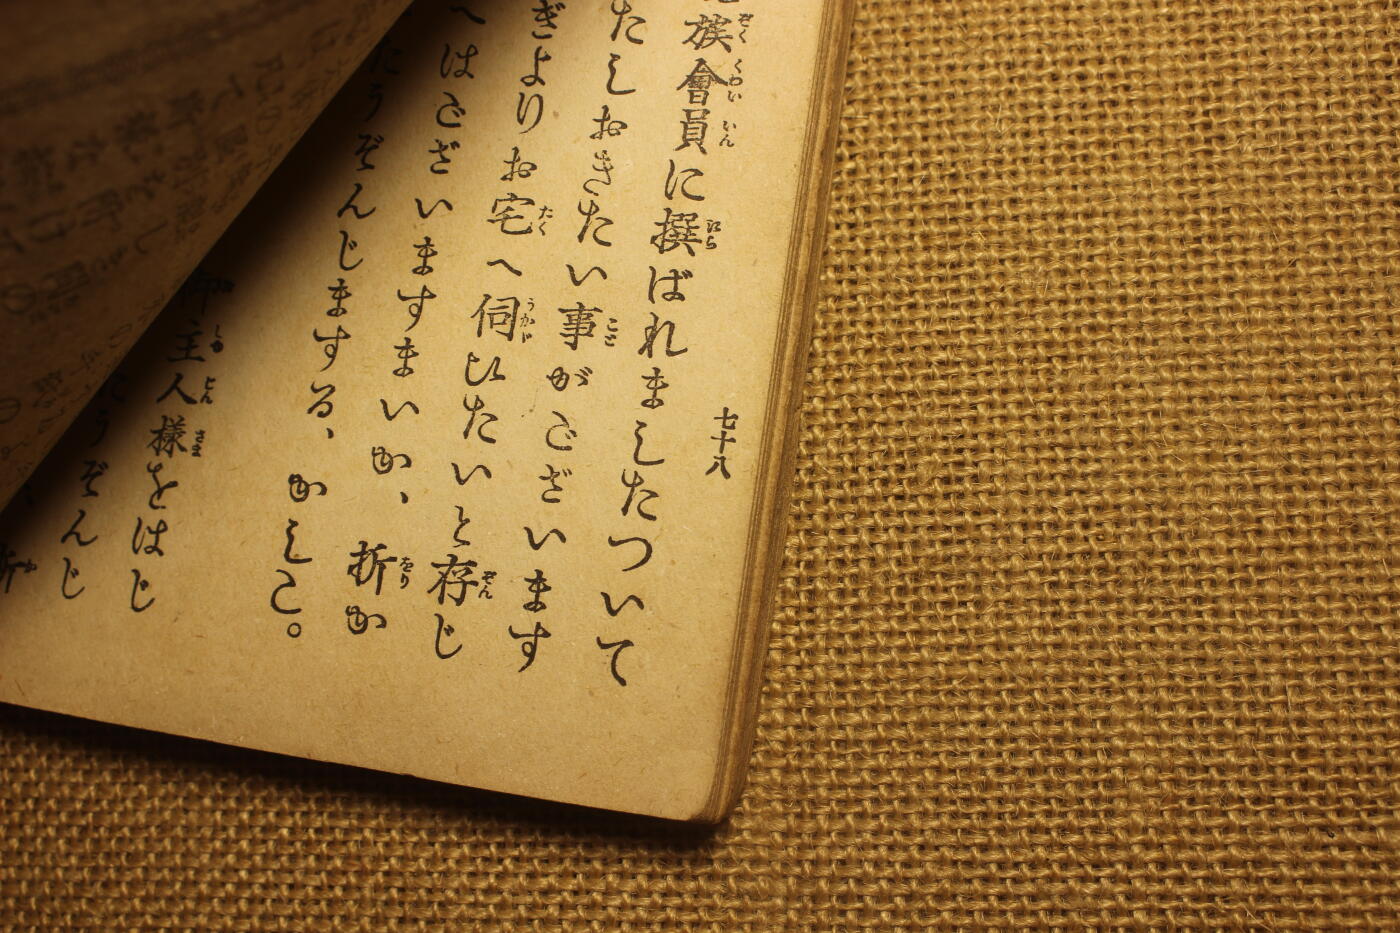 七十八
族會員に撰ばれましたついて
たしおきたい事がございます
ぎよりお宅へ伺ひたいと存じ
へはございますまいか、折か
たうぞんじまする、かしこ。
御主人樣をはじ
うぞんじ
折